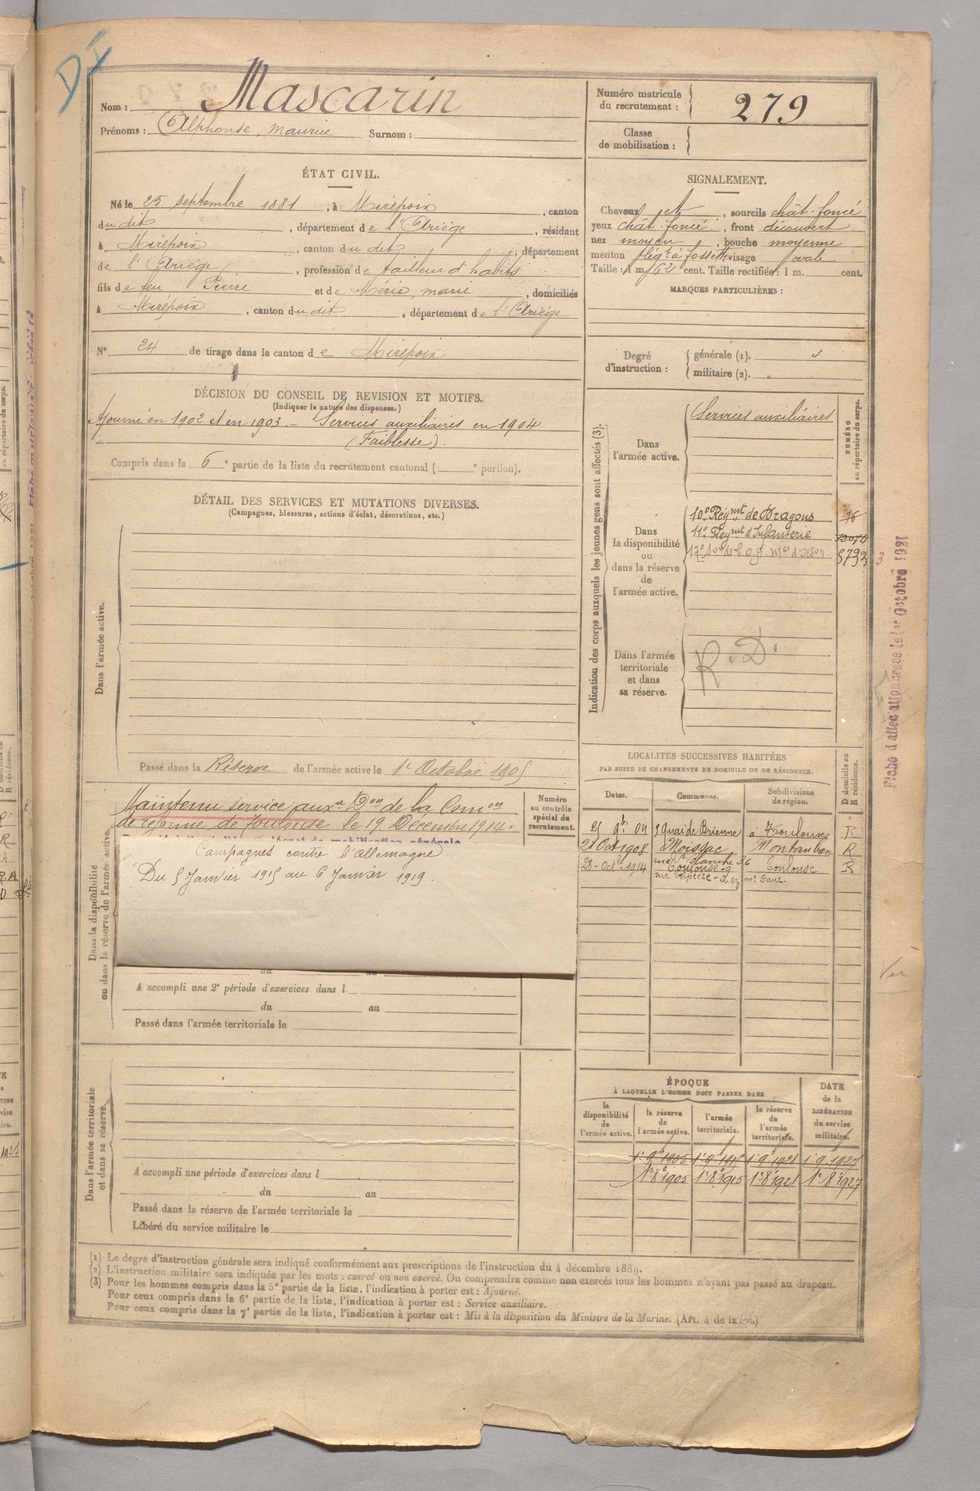 DI
Nom : Mascarin
Prénoms : Alphonse, Maurice Surnom :
Numéro matricule du recrutement : 279
Classe de mobilisation :
ÉTAT CIVIL.
Né le 25 Septembre 1881, à Mirepoix, canton
du dit, département de l'Ariège, résidant
à Mirepoix, canton du dit, département
de l'Ariège, profession de tailleur d'habits
fils de feu Pierre et de Méric, marie, domiciliés
à Mirepoix, canton du dit, département de l'Ariège
N° 24 de tirage dans le canton de Mirepoix
SIGNALEMENT.
Cheveux et, sourcils chât. foncé
yeux chât. foncé, front découvert
nez moyen, bouche moyenne
menton à fossette visage ovale
Taille : 1 m. 62 cent. Taille rectifiée : 1 m. cent.
MARQUES PARTICULIÈRES :
Degré d'instruction :
générale (1).
militaire (2).
DÉCISION DU CONSEIL DE REVISION ET MOTIFS.
(Indiquer la nature des dispenses.)
Ajourné en 1902 et en 1903 - Services auxiliaires en 1904
(Faiblesse).
Compris dans la 6e partie de la liste du recrutement cantonal ( e portion).
DÉTAIL DES SERVICES ET MUTATIONS DIVERSES.
(Campagnes, blessures, actions d'éclat, décorations, etc.)
Dans l'armée active.
Passé dans la Réserve de l'armée active le 1er Octobre 1905
Indication des corps auxquels les jeunes gens sont affectés (3).
NUMÉRO au répertoire du corps.
Dans l'armée active.
Services auxiliaires
Dans la disponibilité ou dans la réserve de l'armée active.
10e Régmt de Dragons 76
Régmt d'Infanterie
5793
3
Dans l'armée territoriale et dans sa réserve.
R. D.
Fiche d'affectation créée le 1er Octobre 1921
LOCALITÉS SUCCESSIVES HABITÉES
PAR SUITE DE CHANGEMENTS DE DOMICILE OU DE RÉSIDENCE.
Dates. Communes. Subdivisions de région. D domicile ou R résidence.
25 9bre 04 9 Quai de Brienne à Toulouse R
21 Oct 1908 Moissac Montauban R
28 Oct 1914 Toulouse Toulouse R
Dans la disponibilité ou dans la réserve de l'armée active.
Numéro au contrôle spécial du recrutement.
Maintenu service auxre Don de la Comon
de réforme de Toulouse le 19 Décembre 1914.
Campagnes contre l'allemagne
Du 5 Janvier 1915 au 6 Janvier 1919.
du au
A accompli une 2e période d'exercices dans l
du au
Passé dans l'armée territoriale le
Vu
Dans l'armée territoriale et dans sa réserve.
A accompli une période d'exercices dans l
du au
Passé dans la réserve de l'armée territoriale le
Libéré du service militaire le
ÉPOQUE
À LAQUELLE L'HOMME DOIT PASSER DANS
la disponibilité de l'armée active. la réserve de l'armée active. l'armée territoriale. la réserve de l'armée territoriale. DATE de la LIBÉRATION du service militaire.
1er 9e 1905 1er 9e 1915 1er 9 1921 1er 9 1927
1er 8e 1905 1er 8e 1915 1er 8e 1921 1er 8e 1927
(1) Le degré d'instruction générale sera indiqué conformément aux prescriptions de l'Instruction du 4 décembre 1889.
(2) L'instruction militaire sera indiquée par les mots : exercé ou non exercé. On comprendra comme non exercés tous les hommes n'ayant pas passé au drapeau.
(3) Pour les hommes compris dans la 5e partie de la liste, l'indication à porter est : Ajourné.
Pour ceux compris dans la 6e partie de la liste, l'indication à porter est : Service auxiliaire.
Pour ceux compris dans la 7e partie de la liste, l'indication à porter est : Mis à la disposition du Ministre de la Marine. (Art. 4 de la loi.)